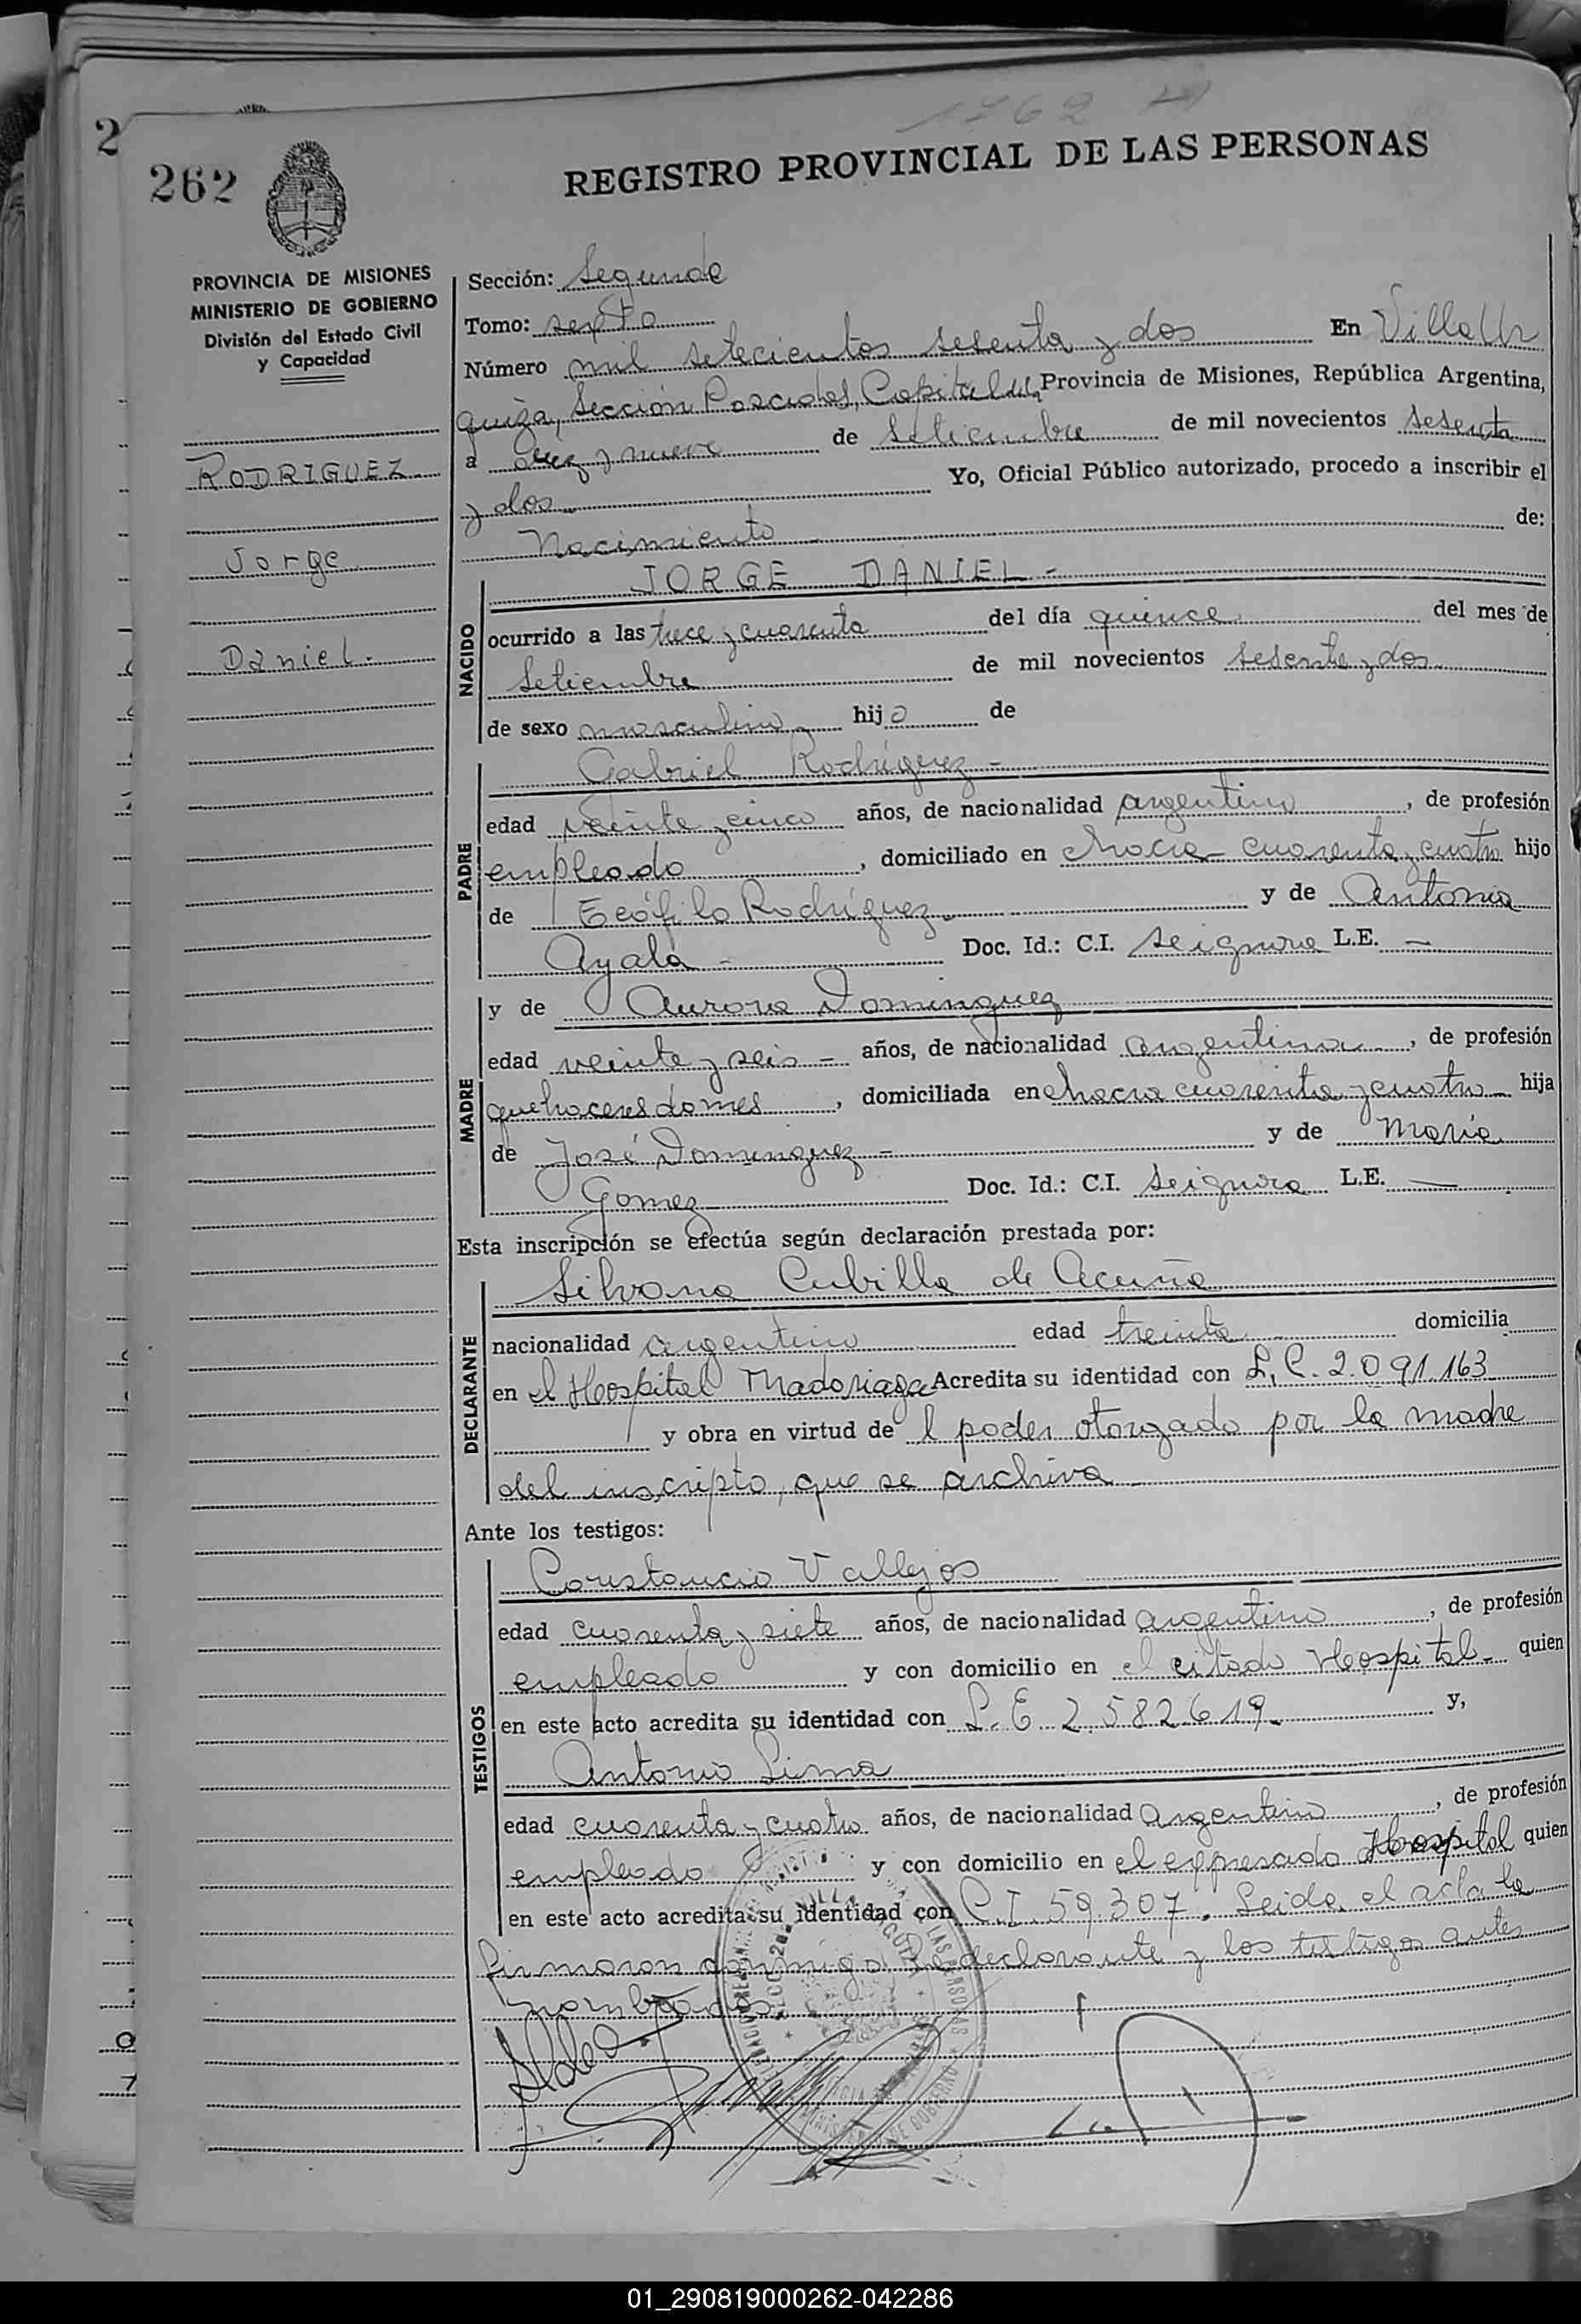 1762
2
262
REGISTRO PROVINCIAL DE LAS PERSONAS
PROVINCIA DE MISIONES
MINISTERIO DE GOBIERNO
División del Estado Civil
y Capacidad
RODRIGUEZ
Jorge
Daniel.
Sección: Segunda
Tomo: sexto
Número mil setecientos sesenta y dos En Villa Ur
quiza, Sección Posadas, Capital de la Provincia de Misiones, República Argentina,
a diez y nueve de setiembre de mil novecientos sesenta
y dos Yo, Oficial Público autorizado, procedo a inscribir el
Nacimiento de:
NACIDO
JORGE DANIEL -
ocurrido a las trece y cuarenta del día quince del mes de
Setiembre de mil novecientos sesenta y dos
de sexo masculino hijo de
PADRE
Gabriel Rodríguez -
edad veinte y cinco años, de nacionalidad argentino, de profesión
empleado, domiciliado en chacra cuarenta y cuatro hijo
de Teófilo Rodríguez y de Antonia
Ayala - Doc. Id.: C.I. se ignora L.E. —
MADRE
y de Aurora Dominguez
edad veinte y seis - años, de nacionalidad argentina, de profesión
quehaceres domes, domiciliada en chacra cuarenta y cuatro hija
de José Dominguez - y de María
Gomez Doc. Id.: C.I. se ignora L.E. —
Esta inscripción se efectúa según declaración prestada por:
DECLARANTE
Silvana Cubilla de Acuña
nacionalidad argentina edad treinta domicilia
en el Hospital Madariaga Acredita su identidad con L.C. 2.091.163
y obra en virtud de l poder otorgado por la madre
del inscripto, que se archiva
Ante los testigos:
TESTIGOS
Constancio Vallejos
edad cuarenta y siete años, de nacionalidad argentino, de profesión
empleado y con domicilio en el citado Hospital - quien
en este acto acredita su identidad con L.E. 2.582.619 y,
Antonio Lima
edad cuarenta y cuatro años, de nacionalidad argentino, de profesión
empleado y con domicilio en el expresado Hospital quien
en este acto acredita su identidad con C.I. 59.307. Leida el acta la
firmaron conmigo la declarante y los testigos antes
nombrados
01_290819000262-042286